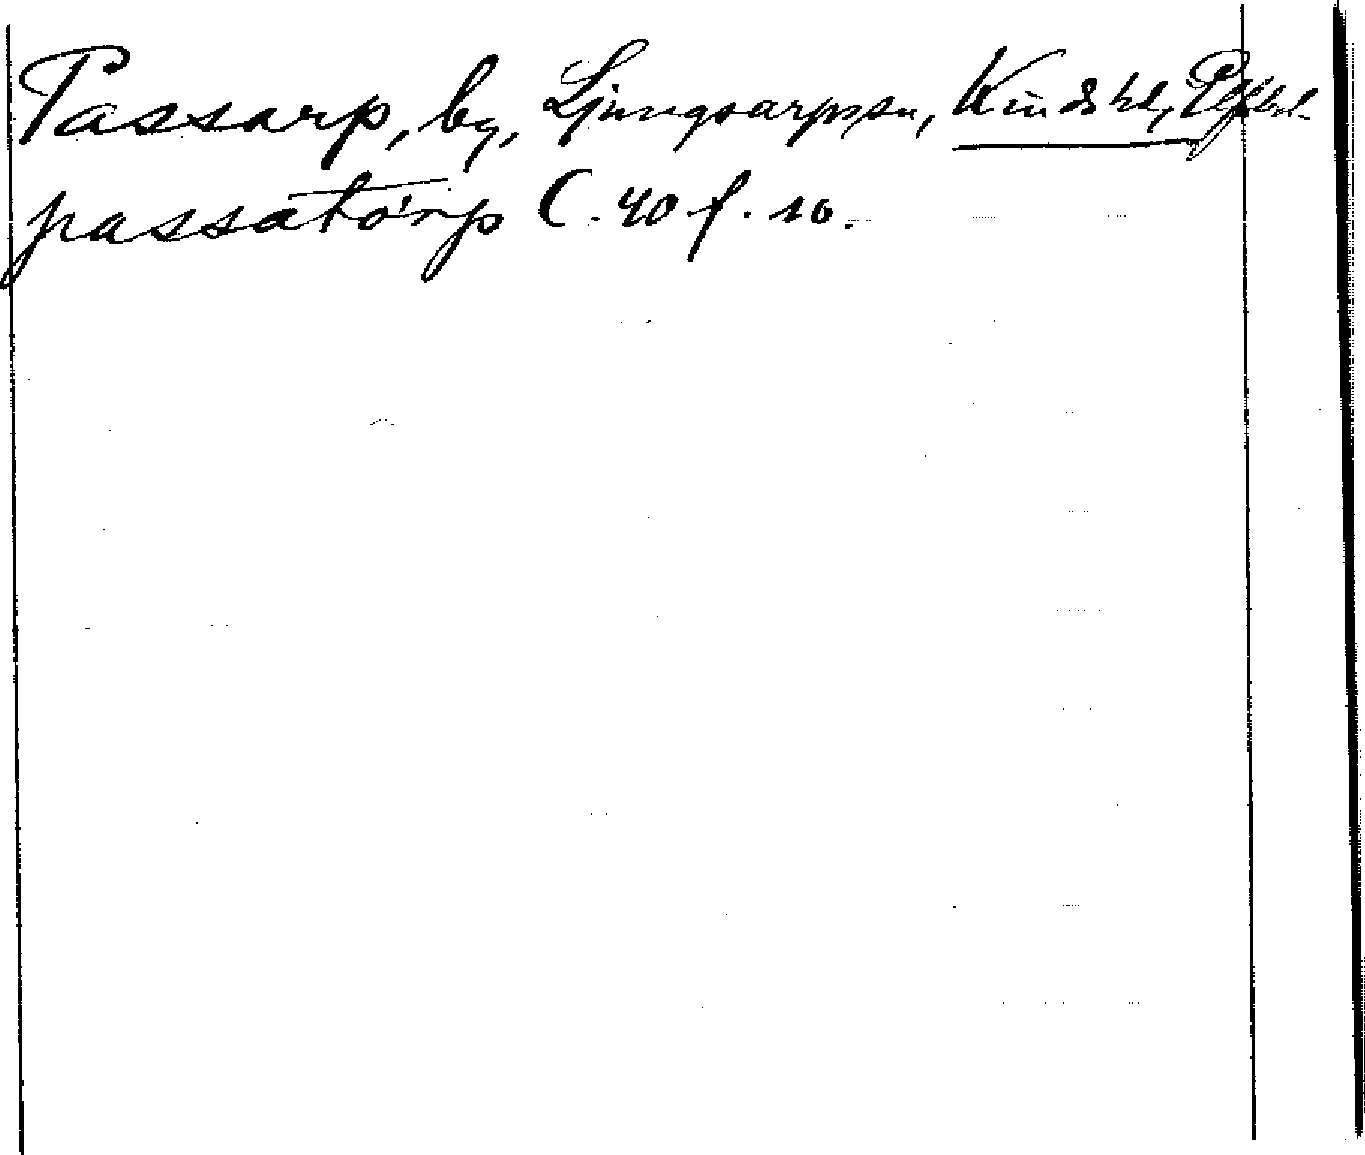 Passarp, by, Ljungsarps sn, Kinds hd,
passatorp C. 40 f. 10.